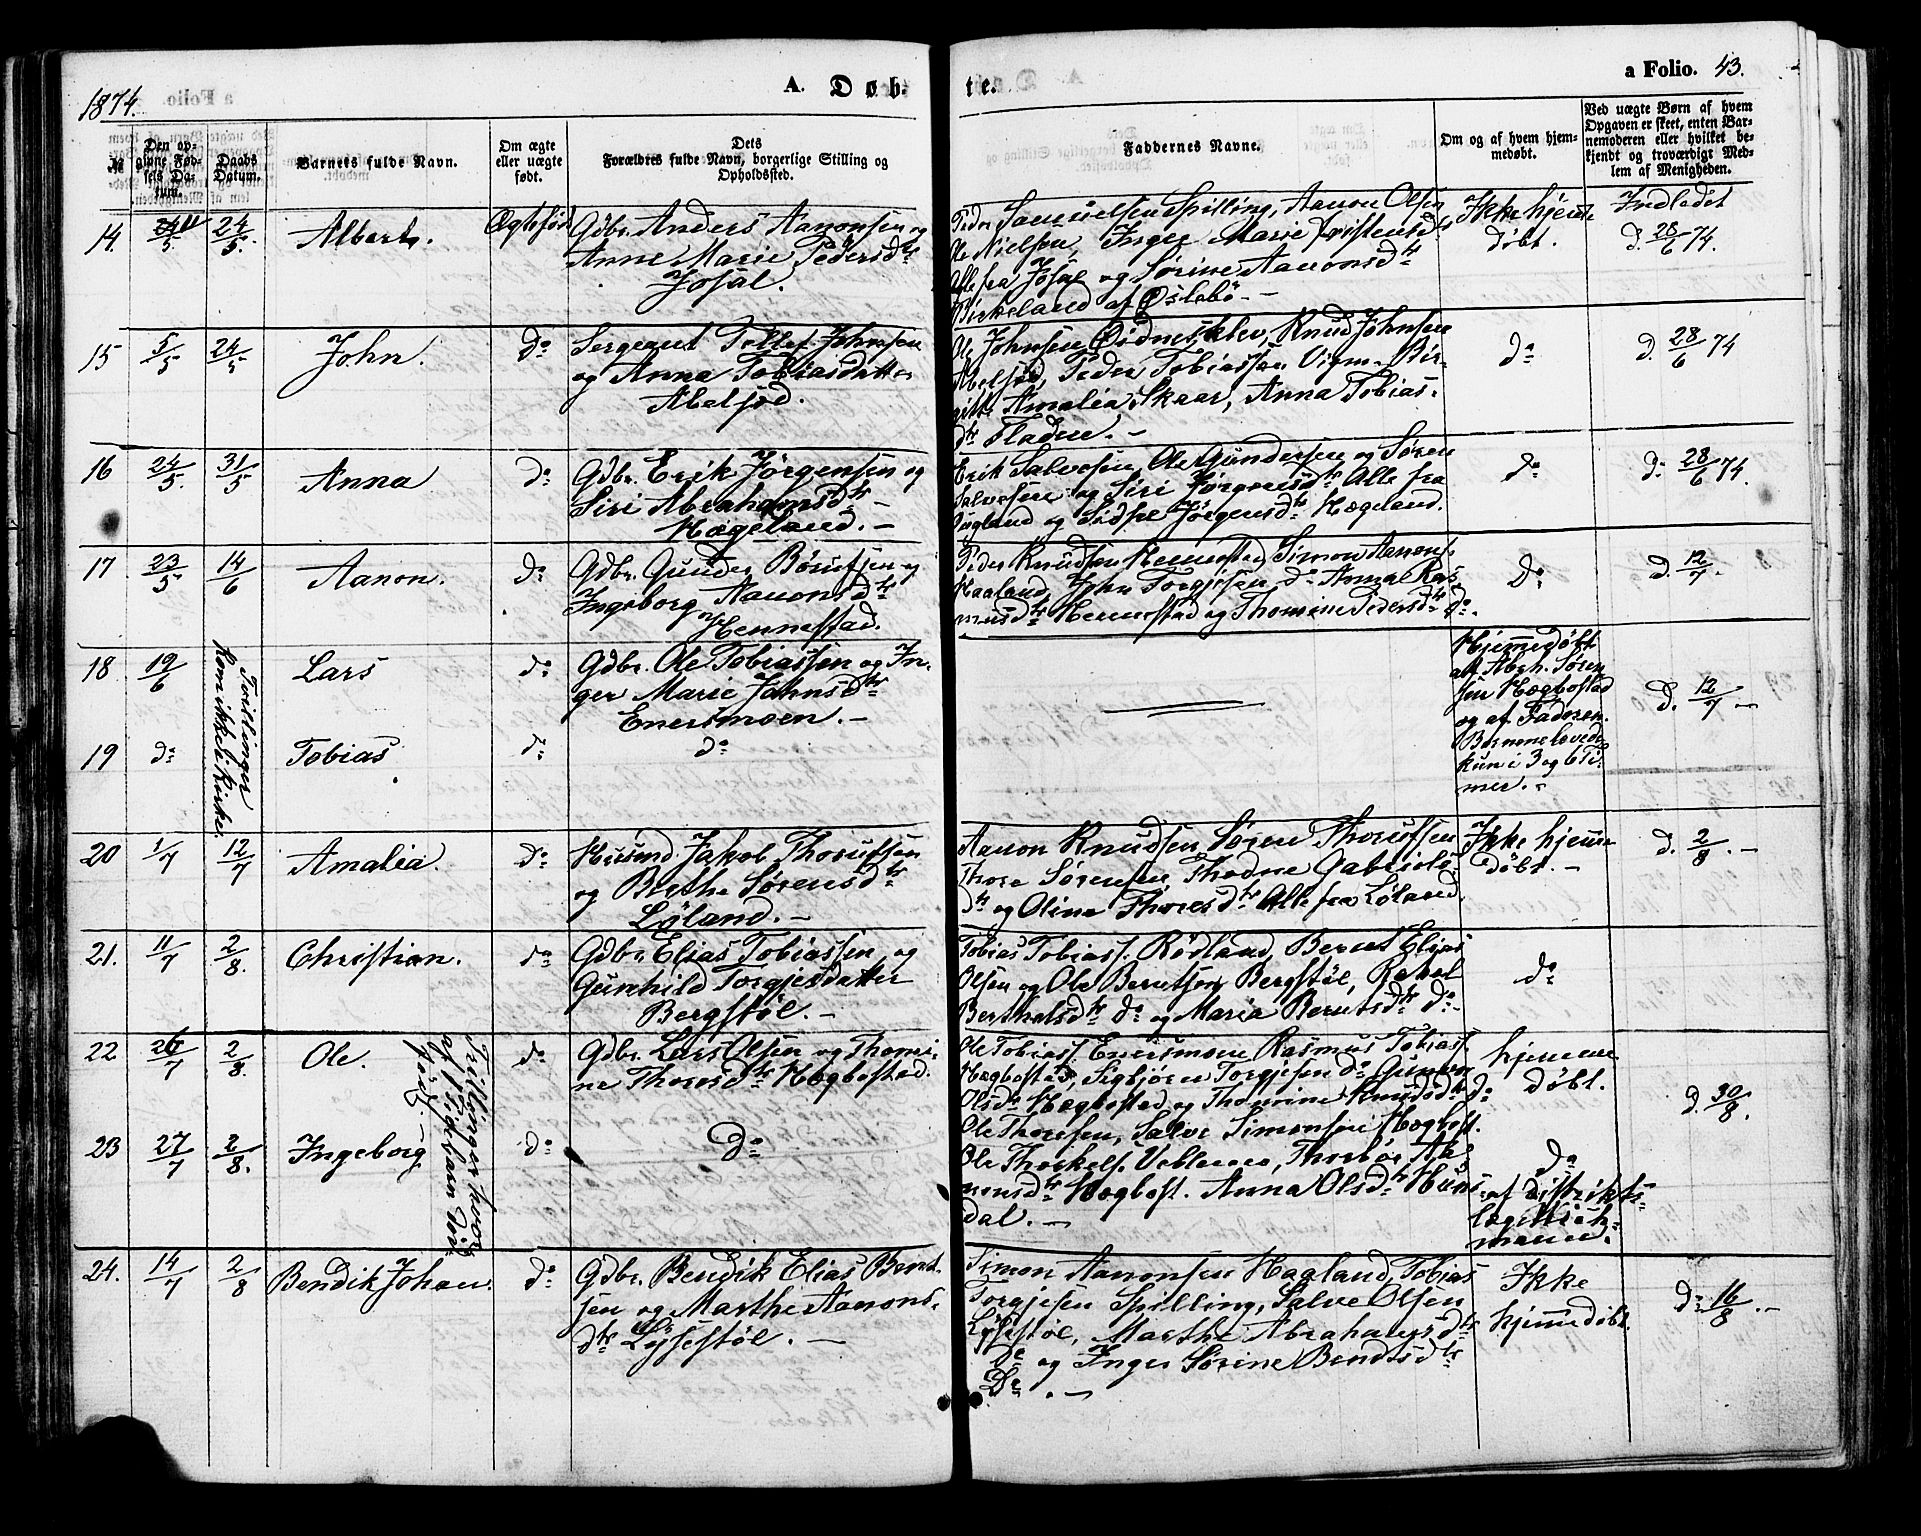 1874.
A. Døb-
te.
a Folio. 43.
№
Den op-
givne Fød-
sels Da-
tum.
Daabs
Datum.
Barnets fulde Navn.
Om ægte
eller uægte
født.
Dets
Forældres fulde Navn, borgerlige Stilling og
Opholdssted.
Faddernes Navne.
Om og af hvem hjem-
medøbt.
Ved uægte Børn af hvem
Opgaven er skeet, enten Bar-
nemoderen eller hvilket be-
kjendt og troværdigt Med-
lem af Menigheden.
14.
24/5.
Albert.
Ægtefød
Gdbr. Anders Aanonsen og
Anne Marie Pedersdtr
Josal.
Peder Samuelsen Spilling, Aanon Olsen
Ole Nielsen, Inger Marie
Alle fra Josal og Sørine Aanonsdtr
Birkeland af Øslebø. -
Ikke hjemme
døbt.
Indledet
d. 28/6 74.
15
5/5
24/5
John.
do
Sergeant Tellef Johnsen
og Anna Tobiasdatter
Abelsed.
Ole Johnsen Ødneskley, Knud Johnsen
Abelsed, Peder Tobiassen Bir-
gitte Amalia Skaar, Anna Tobias-
dtr Fladen. -
do
d. 28/6 74
16
24/5.
31/5
Anna
do
Gdbr. Erik Jørgensen og
Siri Abrahamsdtr -
Hægeland. -
Erik Salvesen, Ole Gundersen og Søren
Salvesen og Siri Jørgensdtr Alle fra
og Jørgensdtr Hægeland.
do
d. 28/6 74.
17
23/5
14/6
Aanon.
do
Gdbr. Gunder Børufsen og
Ingeborg Aanonsdtr
Hennestad.
Peder Knudsen Hennestad, Simon Aanons.
Haaland, John Torgjesen do Anna Ras-
musdtr Hennestad og Thomine Pedersdtr do.
do
d. 12/7.
18
19/6
Tvillinger
kom ikke i Kirke.
Lars
do
Gdbr. Ole Tobiassen og In-
ger Marie Jahnsdtr
Enersmoen. -
Hjemmedøbt
af Abrh. Søren-
sen Hægbostad
og af Faderen.
Børnene levede
kun i 3 og 6 Ti-
mer. -
d. 12/7 -
19
do
Tobias
do
do
20
1/7
12/7
Amalia.
do
Husmd. Jakob Thorufsen
og Berthe Sørensdtr
Løland. -
Aanon Knudsen, Søren Thorufsen
Thore Sørensen, Thodne Gabriels-
dtr og Olina Thoresdtr Alle fra Løland.
Ikke hjemme
døbt. -
d. 2/8. -
21.
11/7
2/8.
Christian.
do
Gdbr. Elias Tobiassen og
Gunhild Torgjesdatter
Bergstøl. -
Tobias Tobiass. Rødland, Bernt Elias
Olsen og Ole Berntsen Bergstøl, Rakel
Berthelsdtr do og Maria Berntsdtr do. -
do
22
26/7
2/8.
Ole.
Trillinger hvoraf
et Barn død-
født.
do
Gdbr. Lars Olsen og Thomi-
ne Thoresdtr Hægbostad.
Ole Tobiass. Enersmoen, Rasmus Tobiass.
Hægbostad, Sigbjørn Torgjesen do Gunvor
Olsdtr Hægbostad og Thomine Knudsdtr do
hjemme
døbt.
d. 30/8.
23
27/7
2/8.
Ingeborg
do
do
Ole Thoresen, Salve Simonsen Hægbost.
Ole Thorkels. Thorbør Aa-
nonsdtr Hægbost. Anna Olsdtr Huns-
dal. -
do
af Distrikts-
læge Wick-
mann.
24.
14/7
2/8
Bendik Johan.
do
Gdbr. Bendik Elias Bernt-
sen og Marthe Aanons-
dtr Lysestøl. -
Simon Aanonsen Haaland, Tobias
Torgjesen Spilling, Salve Olsen
Lysestøl, Marthe Abrahamsdtr
do og Inger Sørine Bendtsdtr
do. -
Ikke
hjemmedøbt.
d. 16/8. -